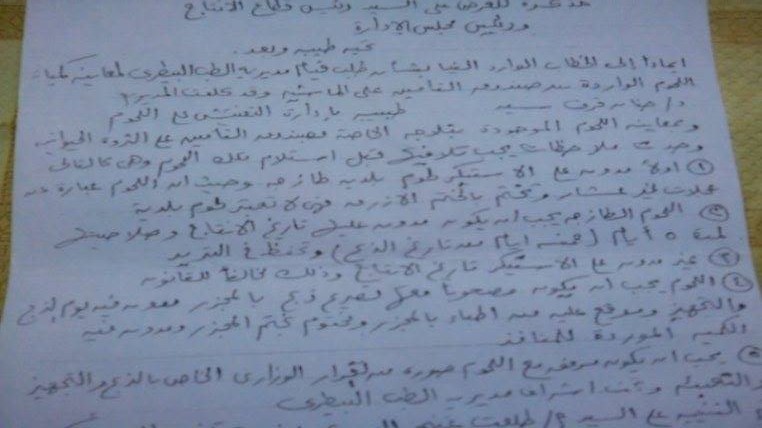 مذكرة للعرض على السيد رئيس قطاع الانتاج
ورئيس مجلس الإدارة
تحية طيبه وبعد
ايماءاً إلى الخطاب الوارد الينا بشأن طلب قيام مديرية الطب البيطرى لمعاينة كميات
اللحوم الواردة من صندوق التأمين على الماشيه وقد كلفت
د/ سيد طبيبه بإدارة التفتيش على اللحوم
وبمعاينه اللحوم الموجودة بثلاجه الخاصة بصندوق التأمين على الثروه الحيوانيه
وجدت ملاحظات يجب تلافيها قبل استلام تلك اللحوم وهى كالتالى
① اولاً مدون على الاستيكر لحوم بلديه طازجه وحيث ان اللحوم عبارة عن
عجلات غير عشار وتختم بالختم الازرق فهى لا تعتبر لحوم بلدية
② اللحوم الطازجه يجب ان يكون مدون عليها تاريخ الانتاج وصلاحيتها
لمدة ٥ أيام (خمسه ايام من تاريخ الذبح) وتحفظ فى التبريد
③ غير مدون على الاستيكر تاريخ الانتاج وذلك مخالفاً للقانون
④ اللحوم يجب ان يكون مصحوباً معها تصريح ذبح بالمجزر مدون فيه يوم الذبح
والتجهيز وموقع عليه من اطباء بالمجزر ومختوم بختم المجزر ومدون فيه
الكميه الموردة للمنافذ
⑤ يجب ان يكون مرفق مع اللحوم صوره من القرار الوزارى الخاص بالذبح والتجهيز
والتعبئه وتحت اشراف مديرية الطب البيطرى
التنبيه على السيد م/ طلعت